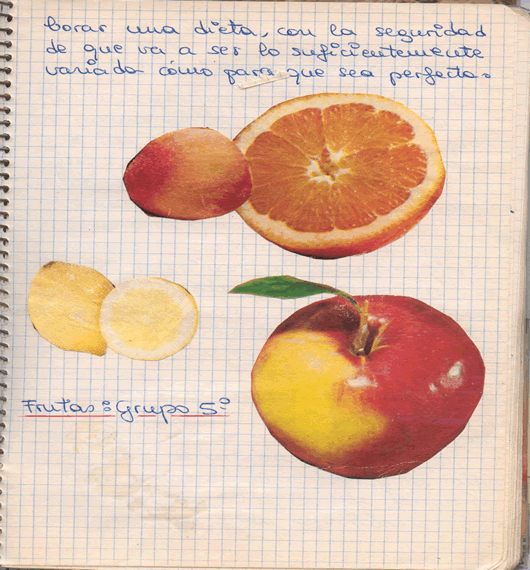 borar una dieta, con la seguridad
de que va a ser lo suficientemente
variada cómo para que sea perfecta.
Frutas: Grupo 5º